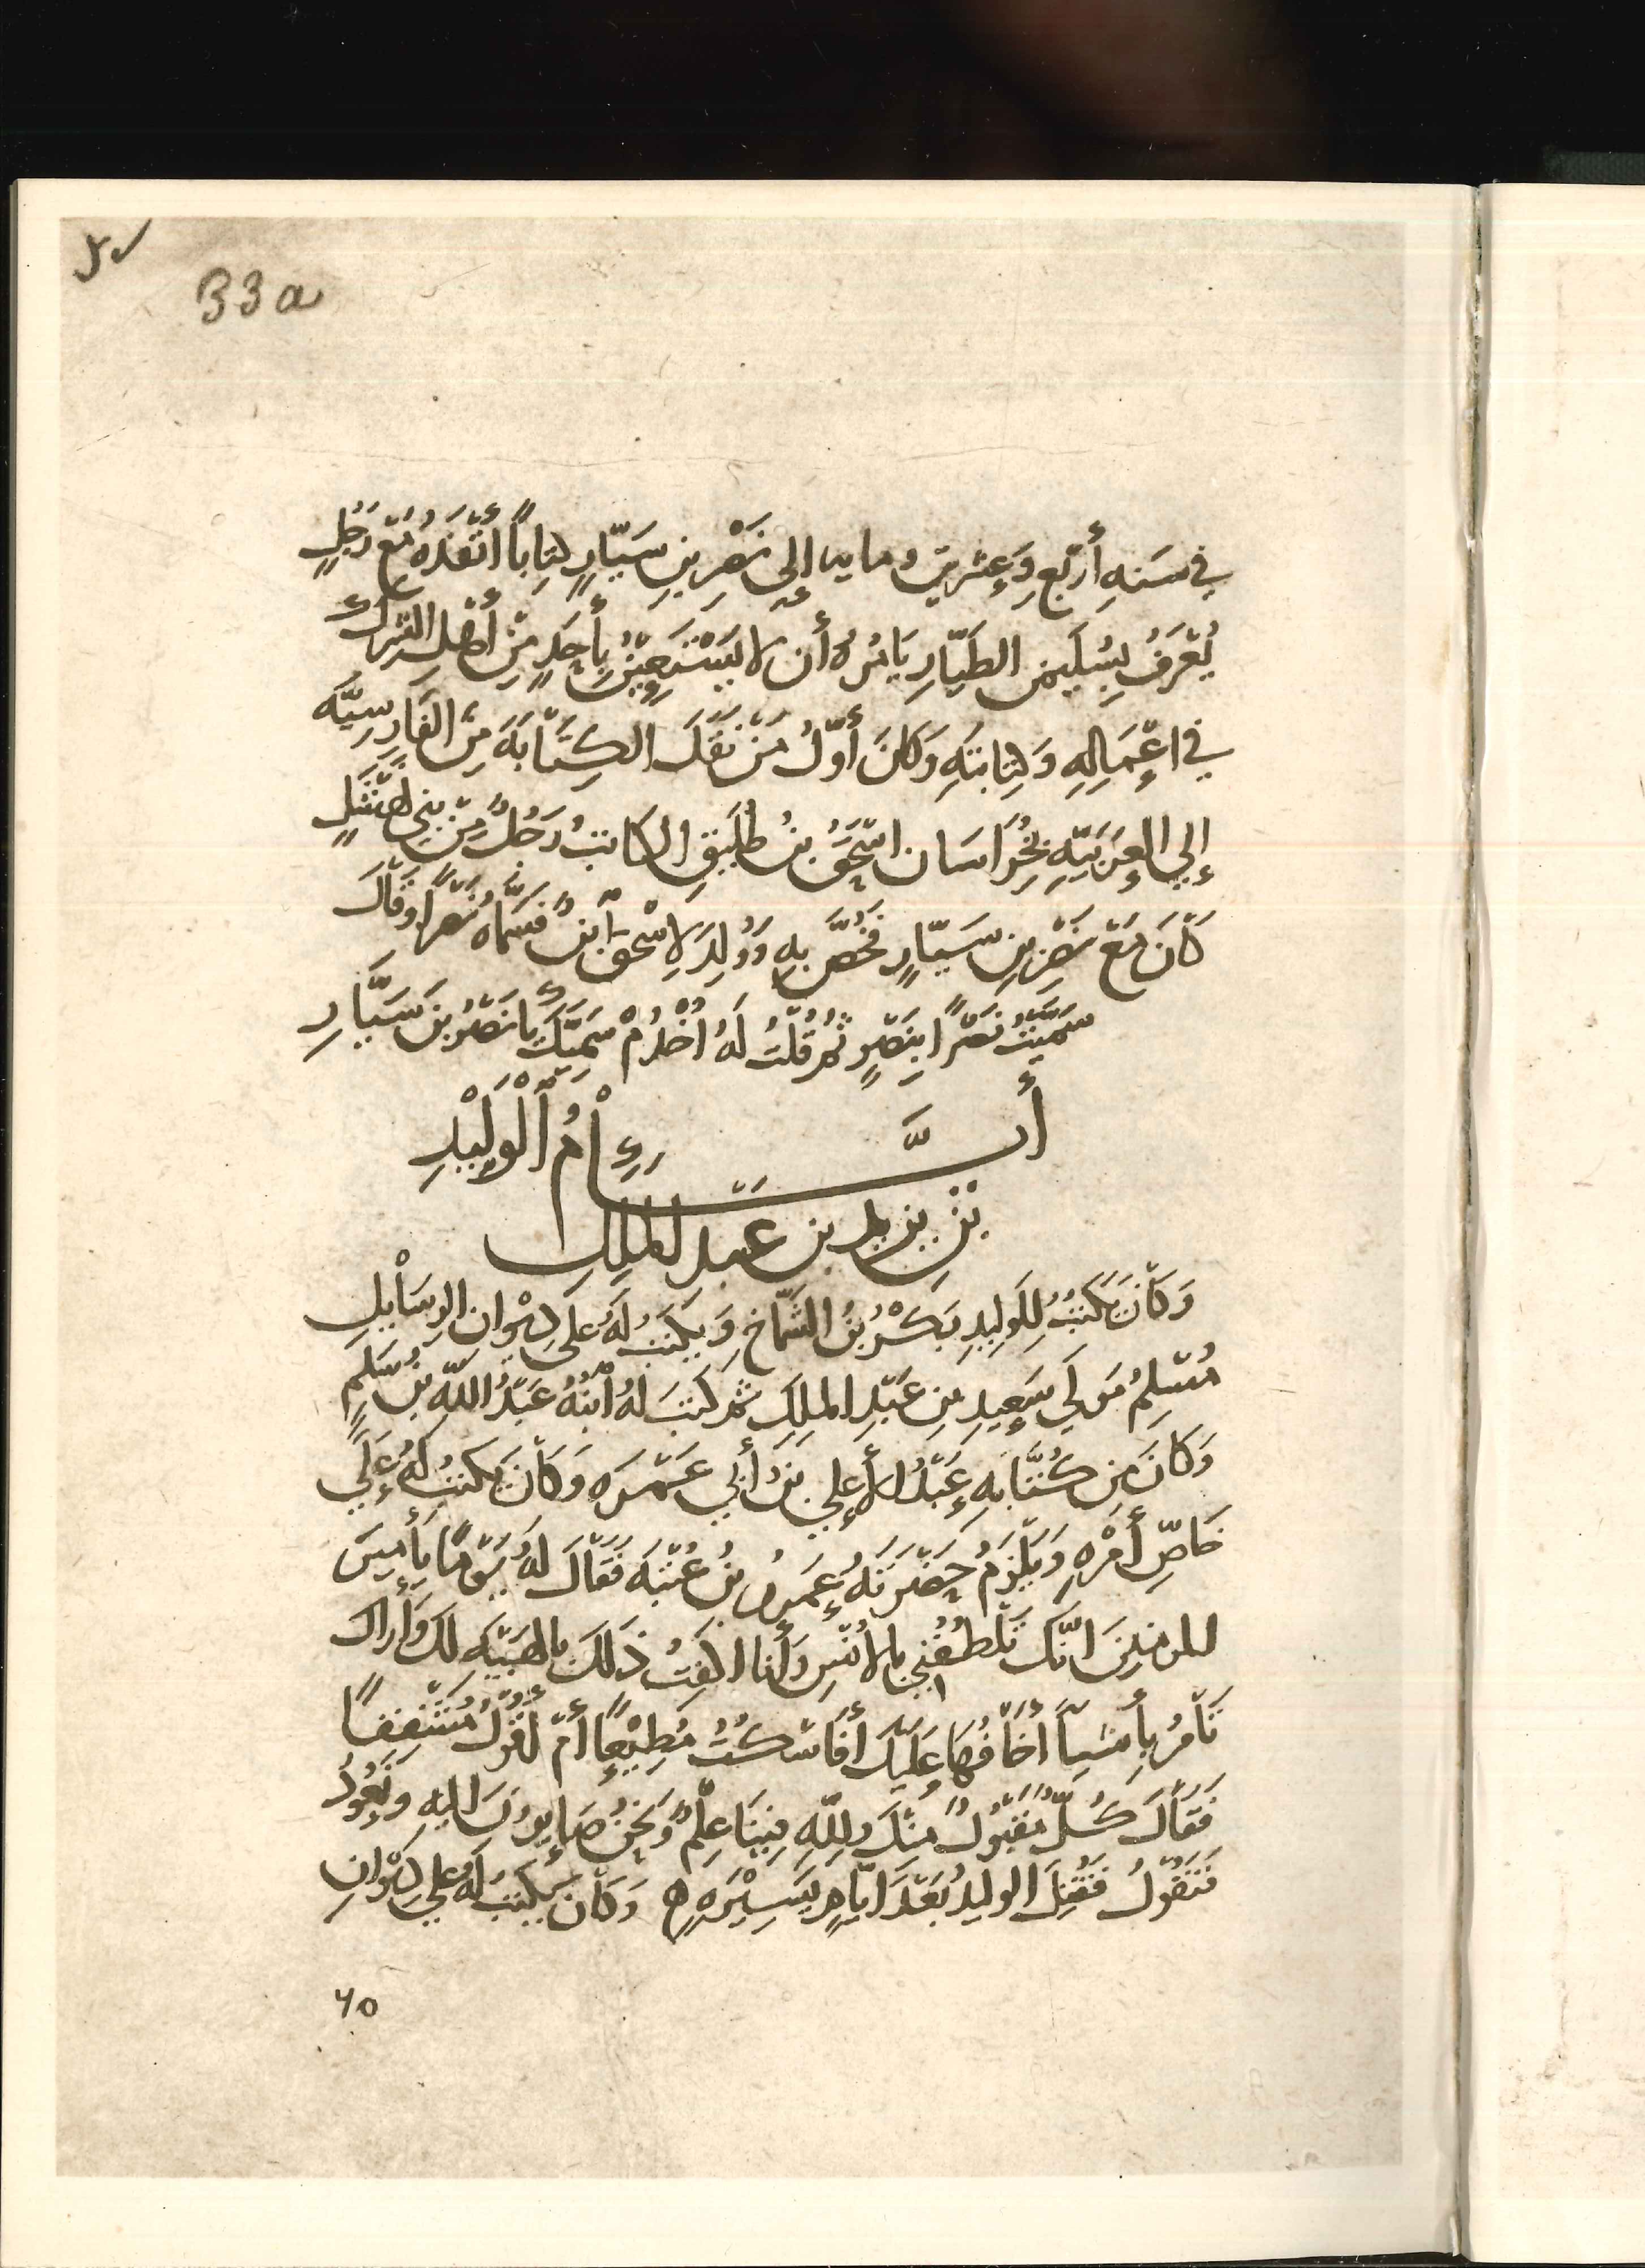 33a
في سَنهِ أَرْبَعٍ وَعِشْرِينَ ومايه إِلى نَصْرِ بنِ سَيّارٍ كِتاباً أنْفَذَهُ مَعَ رَجُلٍ
يُعْرَفُ بِسُلَيمن الطَيّارِ يَامُرُهُ أن لا يَسْتَعِينَ بِأَحَدٍ مِنْ أَهْلِ الشِركِ
في اعْمَالِهِ وَكِتابَتِهِ وَكانَ أَوّلُ مَنْ نَقَلَ الكِتَابَةَ مِنَ الفَارِسِيَّه
إِلي العَرَبيّهِ بخُرَاسَان اسْحَقُ بنُ طُلَيقٍ الكاتبُ رَجُلٌ مِنْ بني نَهْشَلٍ
كَانَ مَعَ نَصْرِ بنِ سَيّارٍ فَخُصَّ بهِ وَوُلِدَ لِاسْحقَ ابْنٌ فَسَمَّاهُ نَصْراً وَقَالَ
سَمَّيْتُ نَصْراً بِنَصْرٍ ثُمّ قُلْتُ لَهُ اخْدُمْ سَمِيَّكَ يا نَصْرُ بن سَيَّارِ
أَيَّامُ الْوَلِيْدِ
بْنِ يزيد بن عَبدِ الملِكِ
وَكانَ يَكْتبُ لِلوَلِيدِ بَكْرُ بنُ الشَمّاخِ وَيَكتبُ لَهُ عَلى دِيْوانِ الرسَائِلِ
مُسْلِمُ مَولَي سَعِيدِ بنِ عَبْدِ الملِكِ ثمّ كَتبَ لهُ ابْنُهُ عَبْدُ اللّهِ بنُ مُسْلِمٍ
وَكانَ مِن كُتَّابِهِ عَبْدُ الأعلي بنُ أبي عَمْرَه وَكانَ يَكتبُ لَهُ عَلَي
خَاصِّ أَمْرِهِ وَيَلْزَمُ حَضْرَتَهُ عَمرُو بنُ عُتْبَه فَقَالَ لَهُ يَوْماً يَا أَمِيرَ
المومنِينَ انّكَ تُلطُفُني بالأُنْسِ وَأَنا اكْفِتُ ذَلكَ بالهَيْبَهِ لَكَ وَأَرَاكَ
تَأْمُرُ بِأَشياً اخَافُها عَلَيْكَ أَفَاسْكُتُ مُطِيْعاً أَمْ أَقُولُ مُشْفِقاً
فَقَالَ كُلٌّ مَقْبُولٌ مِنْكَ وَللّهِ فِيْنَا عِلْمٌ وَنَحْنُ صَايِرُونَ اليهِ وَنَعُودُ
فَنَقُولُ فَقُتِلَ الوليدُ بَعْدَ ايّامٍ يَسِيْرَهٍ ه وَكانَ يَكتبُ لَهُ عَلي دِيْوانِ
٦٥